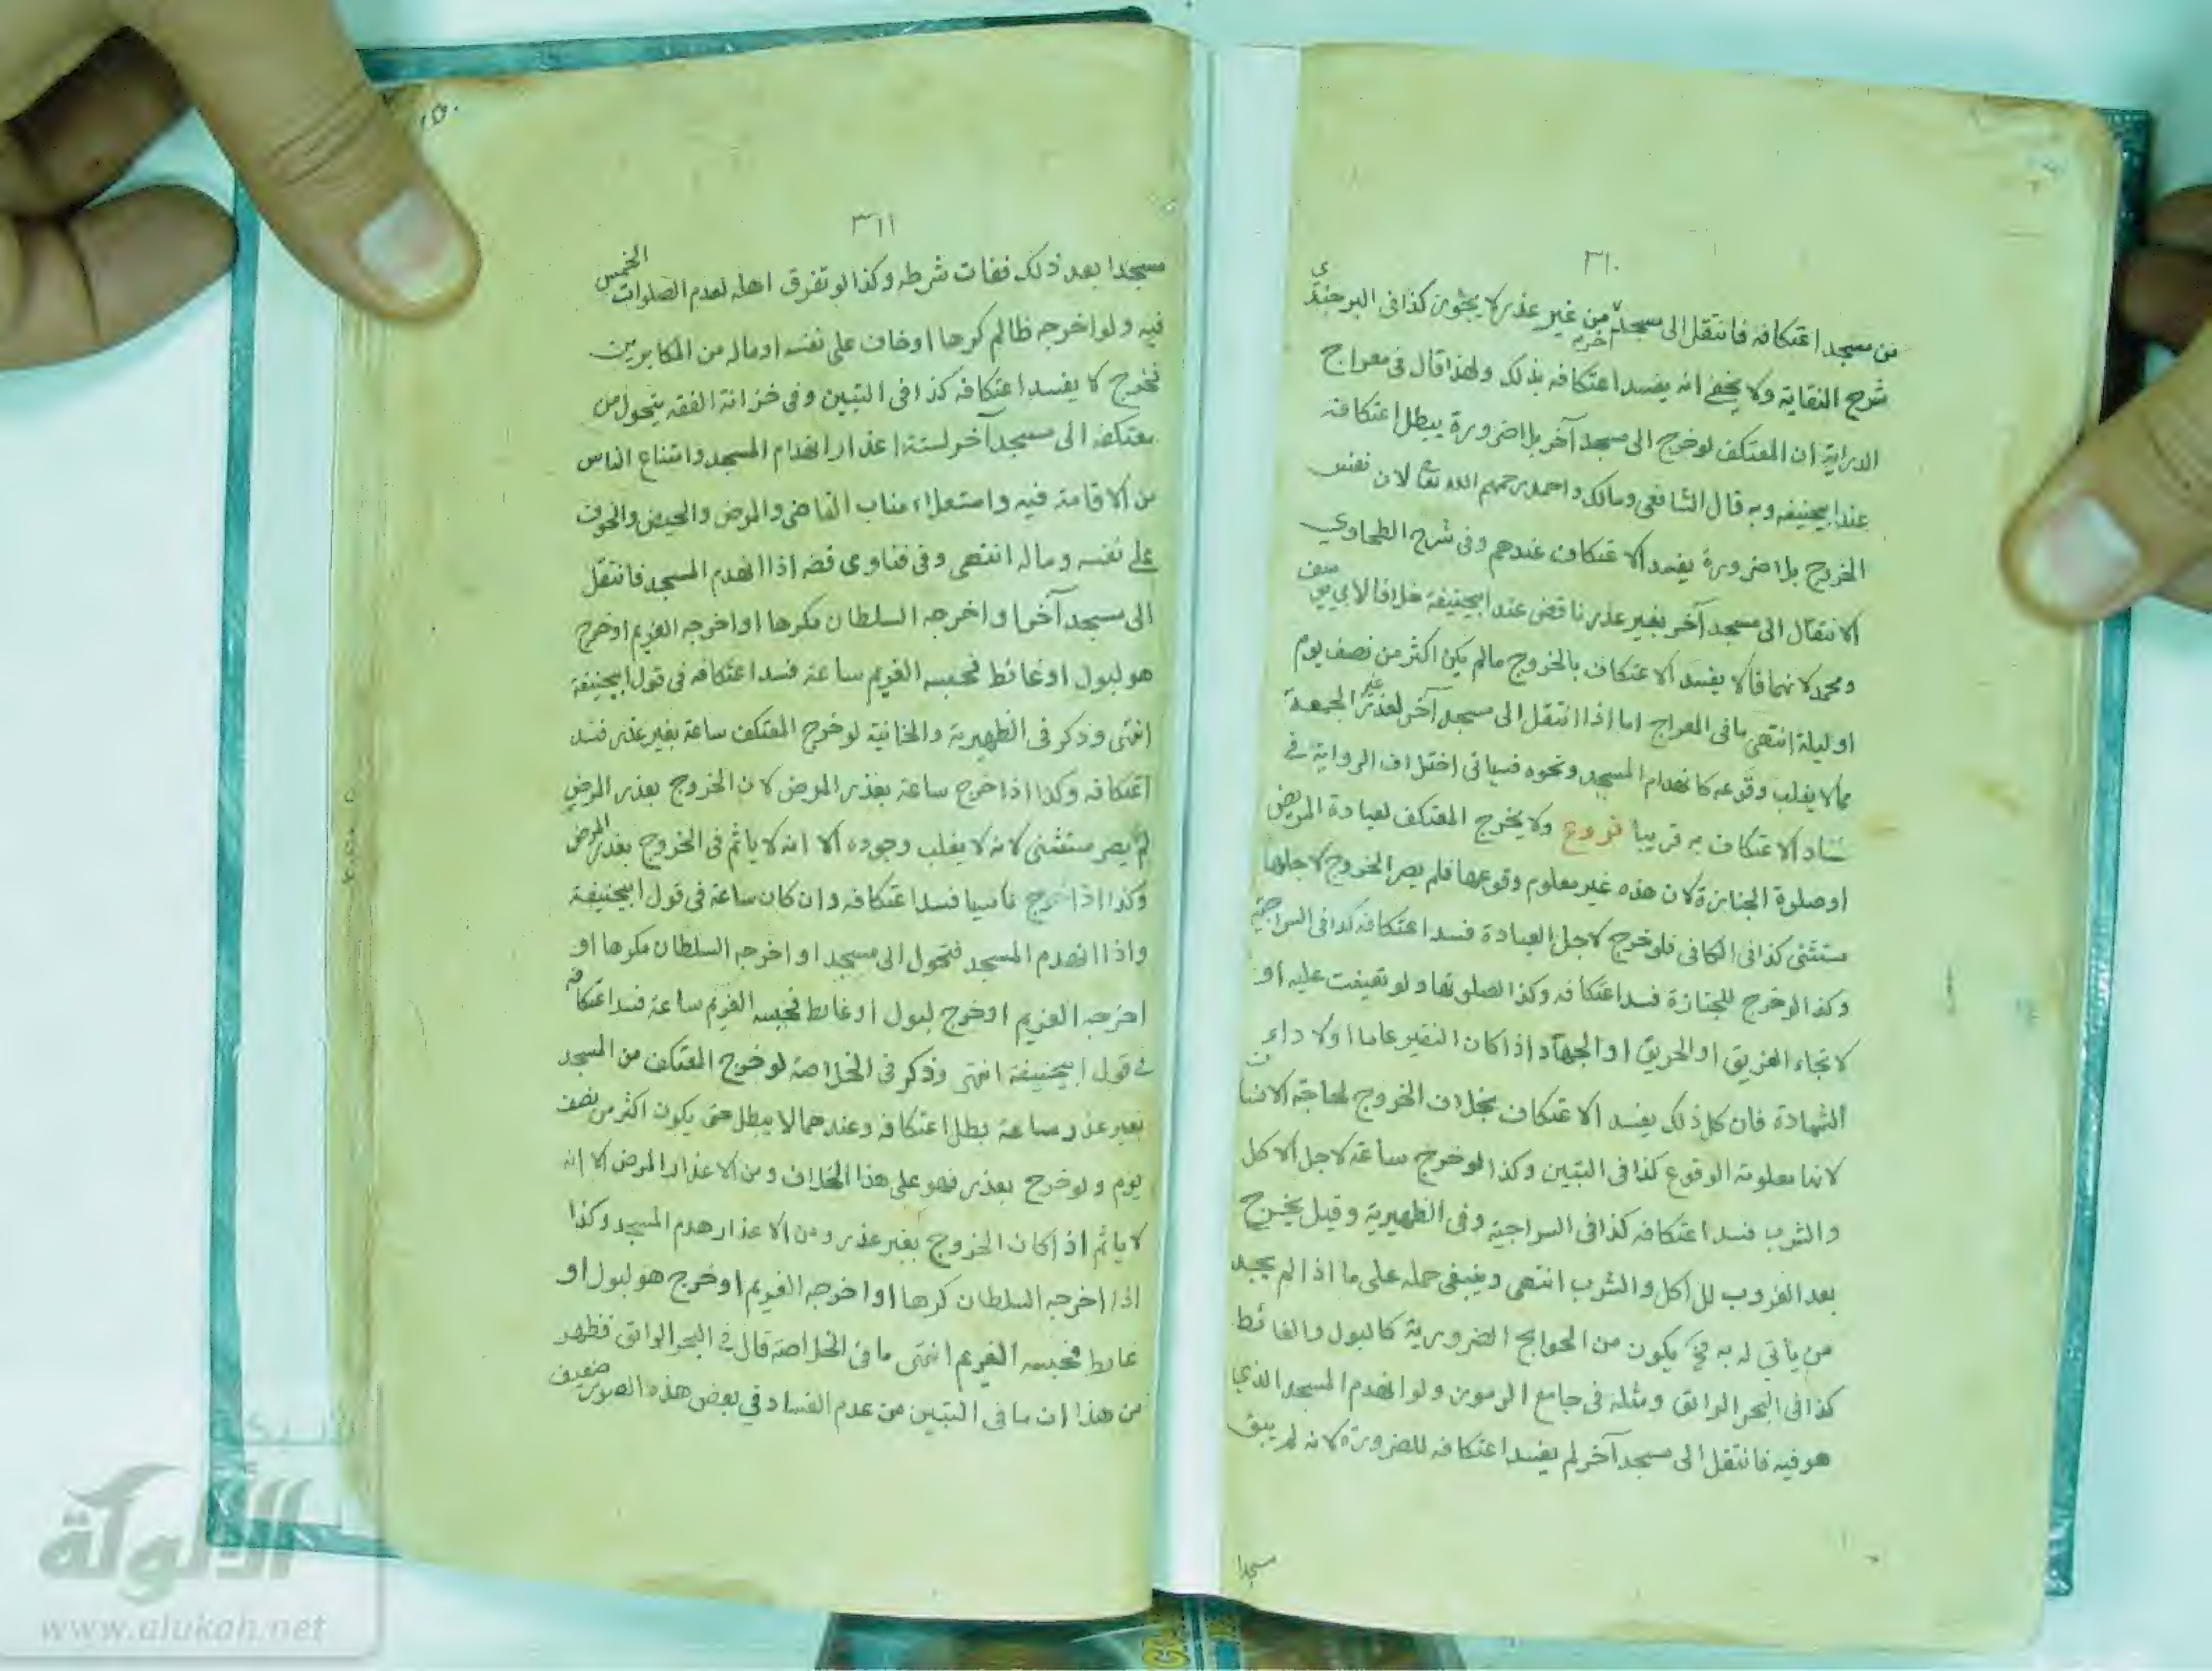 ٣١٠
من مسجد اعتكافه فانتقل الى مسجد آخر من غير عذر لا يجوز كذا فى البرجندي
شرح النقاية ولا يخفى انه يفسد اعتكافه بذلك ولهذا قال فى معراج
الدراية ان المعتكف لو خرج الى مسجد آخر بلا ضرورة يبطل اعتكافه
عند ابيحنيفه وبه قال الشافعى ومالك واحمد رحمهم الله تعا لان نفس
الخروج بلا ضرورة يفسد الاعتكاف عندهم وفى شرح الطحاوي
الانتقال الى مسجد آخر بغير عذر ناقض عند ابيحنيفة خلافا لابي يوسف
ومحمد لانهما قالا يفسد الاعتكاف بالخروج مالم يكن اكثر من نصف يوم
او ليلة انتهى ما فى المعراج اما اذا انتقل الى مسجد آخر لعذر غير الجمعة
مما لا يغلب وقوعه كانهدام المسجد ونحوه فسياتى اختلاف الرواية فى
فساد الاعتكاف به قريبا فروع ولا يخرج المعتكف لعيادة المريض
او صلوة الجنازة لان هذه غير معلوم وقوعها فلم يصر الخروج لاجلها
مستثنى كذا فى الكافى فلو خرج لاجل العيادة فسد اعتكافه كذا فى السراجية
وكذا لو خرج للجنازة فسد اعتكافه وكذا لصلوتها ولو تعينت عليه او
لانجاء الغريق او الحريق او الجهاد اذا كان النفير عاما اولا داء
الشهادة فان كل ذلك يفسد الاعتكاف بخلاف الخروج لحاجة الانسان
لانها معلومة الوقوع كذا فى التبيين وكذا لو خرج ساعة لاجل الاكل
والشرب فسد اعتكافه كذا فى السراجية وفى الظهيرية وقيل يخرج
بعد الغروب للاكل والشرب انتهى وينبغى حمله على ما اذا لم يجد
من يأتى له به فح يكون من الحوايج الضرورية كالبول والغائط
كذا فى البحر الرائق ومثله فى جامع الرموز ولو انهدم المسجد الذي
هو فيه فانتقل الى مسجد آخر لم يفسد اعتكافه للضرورة لانه لم يبق
مسجدا
٣١١
مسجدا بعد ذلك ففات شرطه وكذا لو تفرق اهله لعدم الصلوات الخمس
فيه ولو اخرجه ظالم كرها او خاف على نفسه او ماله من المكابرين
فخرج لا يفسد اعتكافه كذا فى التبيين وفى خزانة الفقه يتحول من
معتكفه الى مسجد آخر لستة اعذار انهدام المسجد وامتناع الناس
من الاقامة فيه واستعلاء مناب القاضى والمرض والحيض والخوف
على نفسه وماله انتهى وفى فتاوى قضه اذا انهدم المسجد فانتقل
الى مسجد آخر او اخرجه السلطان مكرها او اخرجه الغريم او خرج
هو لبول او غائط فحبسه الغريم ساعة فسد اعتكافه فى قول ابيحنيفة
انتهى وذكر فى الظهيرية والخانية لو خرج المعتكف ساعة بغير عذر فسد
اعتكافه وكذا اذا خرج ساعة بعذر المرض لان الخروج بعذر المرض
لم يصر مستثنى لانه لا يغلب وجوده الا انه لا ياثم فى الخروج بعذر المرض
وكذا اذا خرج ناسيا فسد اعتكافه وان كان ساعة فى قول ابيحنيفة
واذا انهدم المسجد فتحول الى مسجد او اخرجه السلطان مكرها او
اخرجه الغريم او خرج لبول او غائط فحبسه الغريم ساعة فسد اعتكافه
فى قول ابيحنيفة انتهى وذكر فى الخلاصة لو خرج المعتكف من المسجد
بغير عذر ساعة بطل اعتكافه وعندهما لا يبطل حتى يكون اكثر من نصف
يوم ولو خرج بعذر فهو على هذا الخلاف ومن الاعذار المرض الا انه
لا ياثم اذا كان الخروج بغير عذر ومن الاعذار هدم المسجد وكذا
اذا اخرجه السلطان كرها او اخرجه الغريم او خرج هو لبول او
غايط فحبسه الغريم انتهى ما فى الخلاصة قال فى البحر الرائق فظهر
من هذا ان ما فى التبيين من عدم الفساد في بعض هذه الصور ضعيف
الألوكة
www.alukah.net